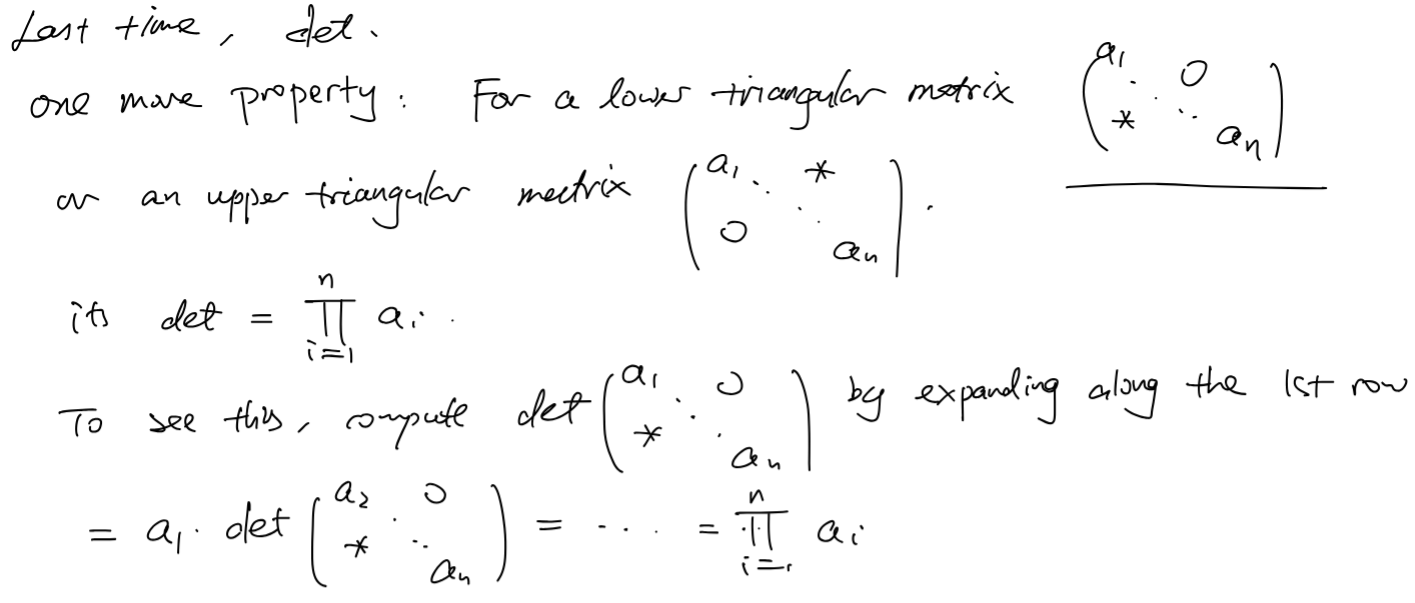 Last time, det.
one more property: For a lower triangular matrix $\begin{pmatrix} a_1 & & 0 \\ & \ddots & \\ * & & a_n \end{pmatrix}$
or an upper triangular matrix $\begin{pmatrix} a_1 & & * \\ & \ddots & \\ 0 & & a_n \end{pmatrix}$.
its det = $\prod_{i=1}^{n} a_i$.
To see this, compute det $\begin{pmatrix} a_1 & & 0 \\ & \ddots & \\ * & & a_n \end{pmatrix}$ by expanding along the 1st row
= $a_1 \cdot$ det $\begin{pmatrix} a_2 & & 0 \\ & \ddots & \\ * & & a_n \end{pmatrix}$ = .... = $\prod_{i=1}^{n} a_i$